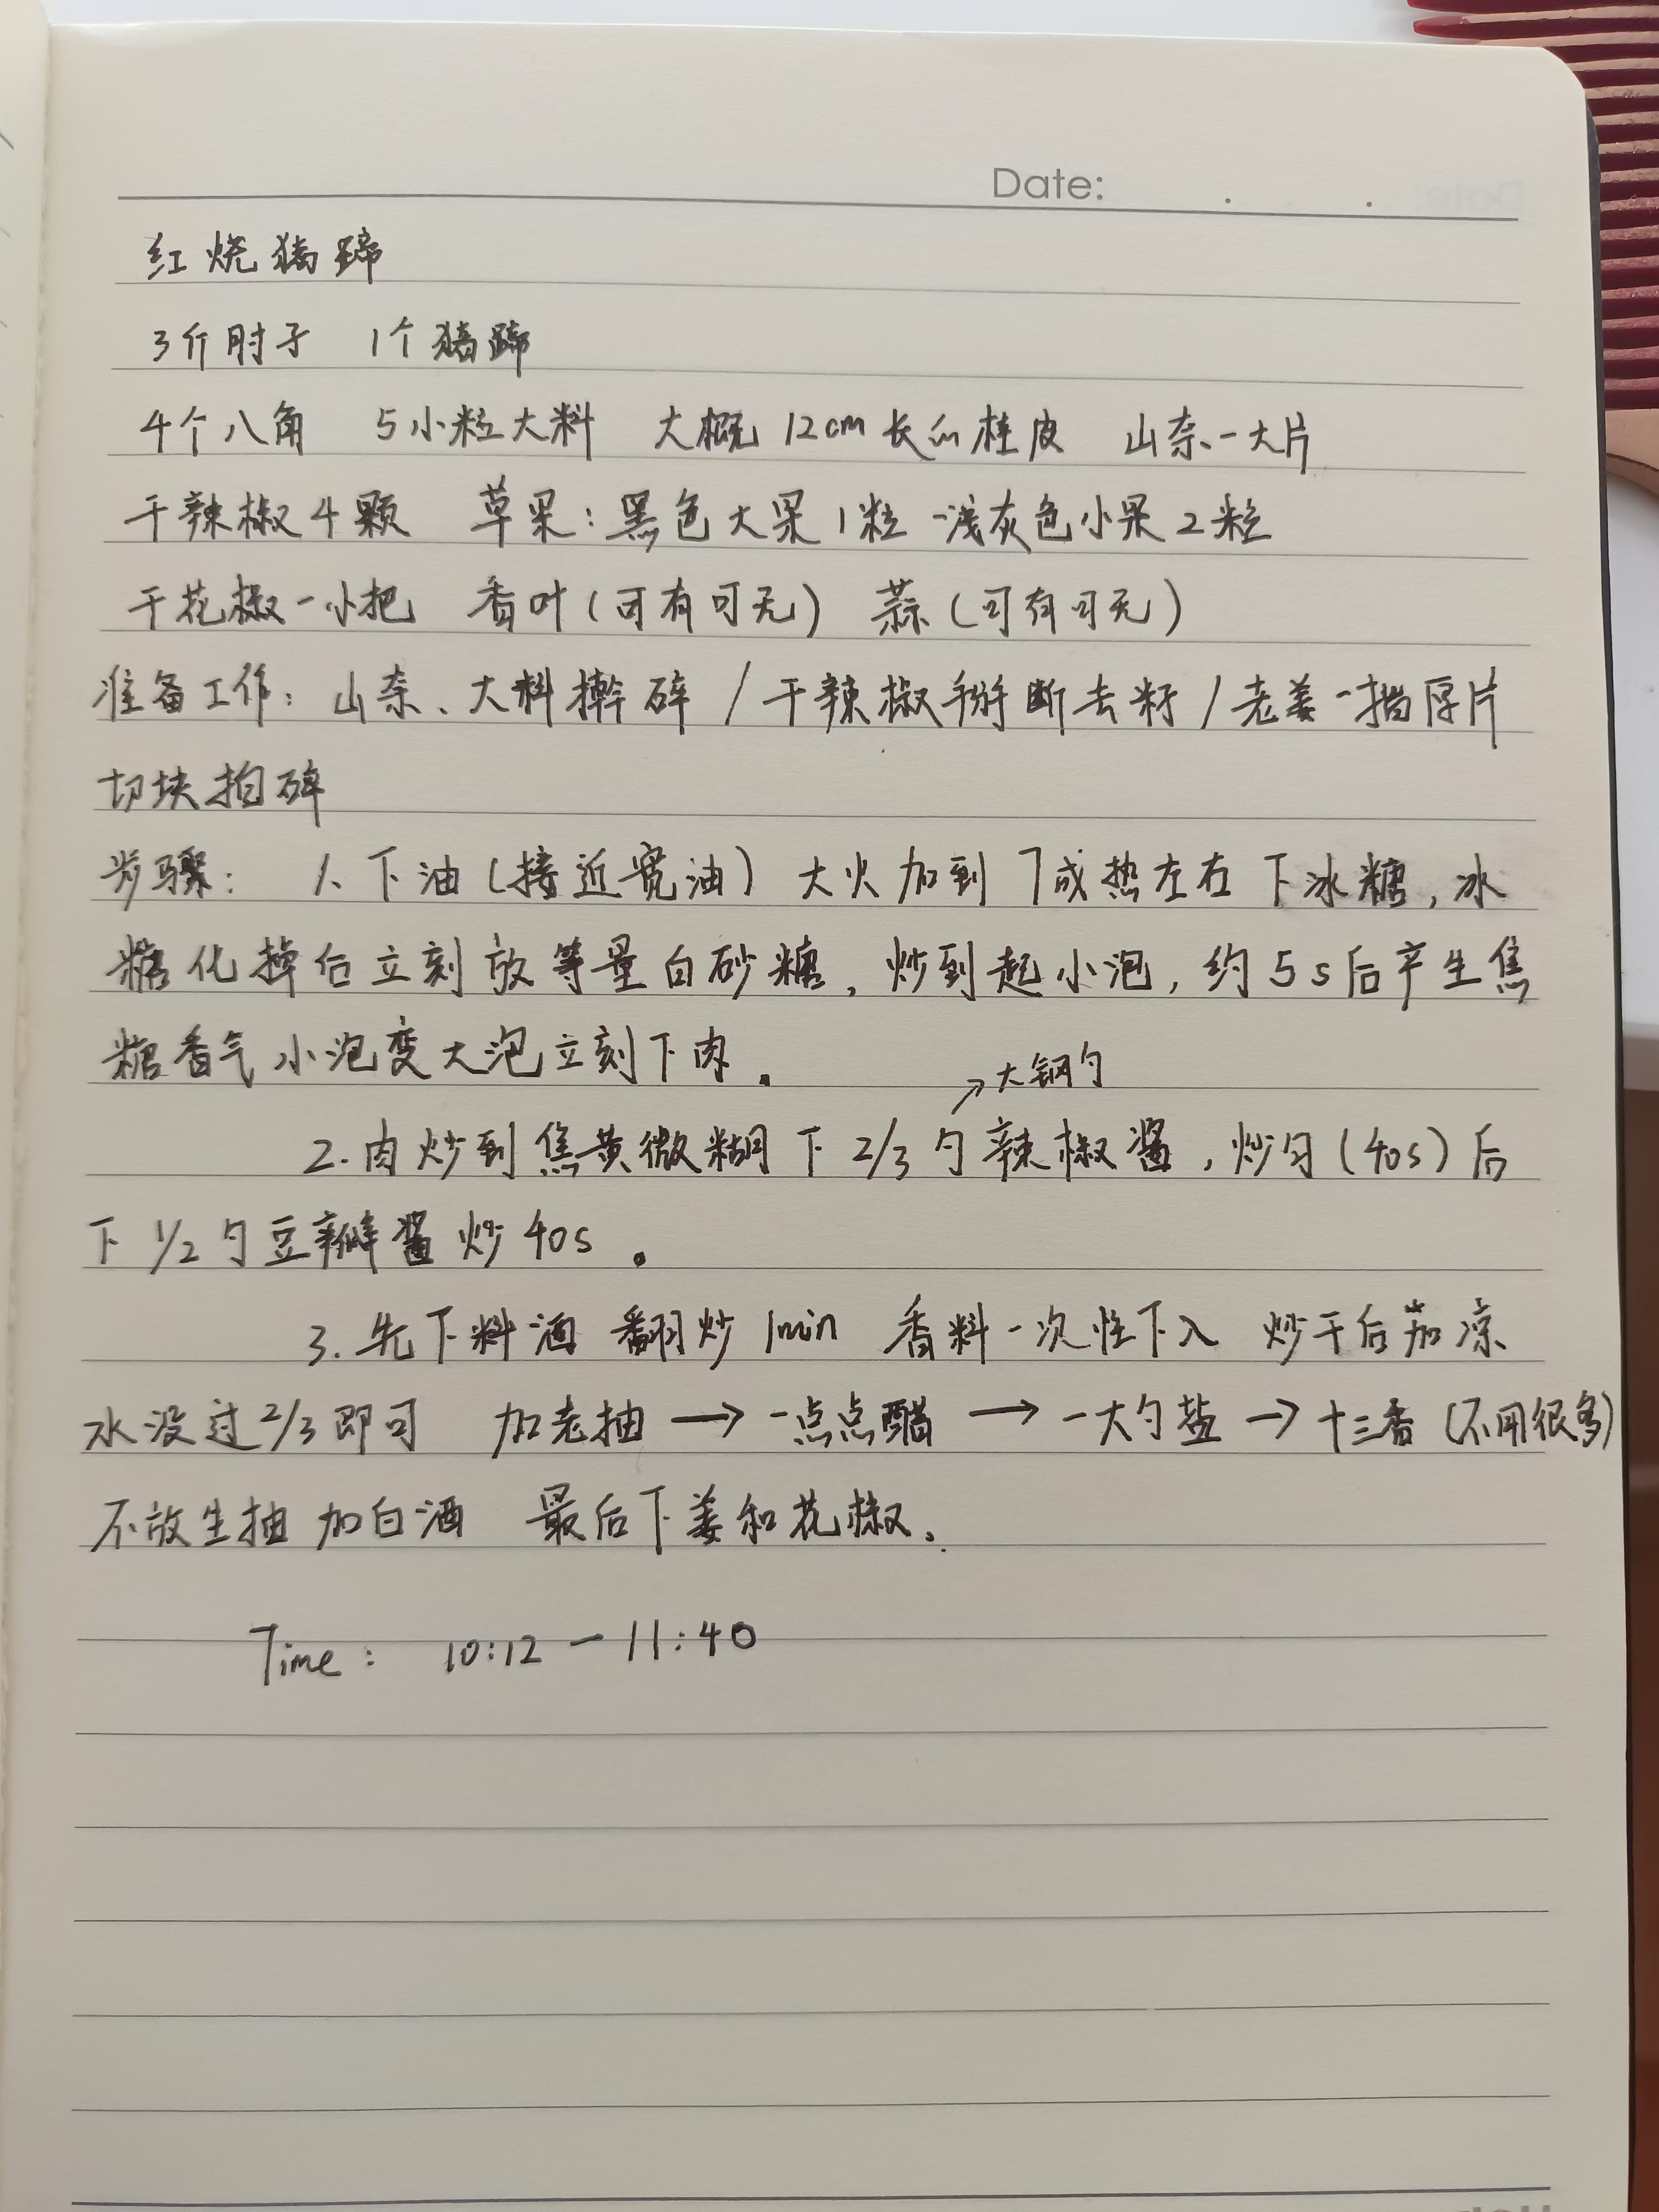 Date:
红烧猪蹄
3斤肘子 1个猪蹄
4个八角 5小粒大料 大概12cm长的桂皮 山奈一大片
干辣椒4颗 草果:黑色大果1粒 浅灰色小果2粒
干花椒一小把 香叶(可有可无) 蒜(可有可无)
准备工作: 山奈、大料擀碎 / 干辣椒掰断去籽 / 老姜一指厚片
切块拍碎
步骤: 1、下油(接近宽油) 大火加到7成热左右 下冰糖,冰
糖化掉后立刻放等量白砂糖,炒到起小泡,约5s后产生焦
糖香气小泡变大泡立刻下肉。
↗大钢勺
2.肉炒到焦黄微糊下2/3勺辣椒酱,炒匀(40s)后
下1/2勺豆瓣酱炒40s。
3.先下料酒 翻炒1min 香料一次性下入 炒干后加凉
水没过2/3即可 加老抽→一点点醋→一大勺盐→十三香(不用很多)
不放生抽 加白酒 最后下姜和花椒.
Time: 10:12 — 11:40